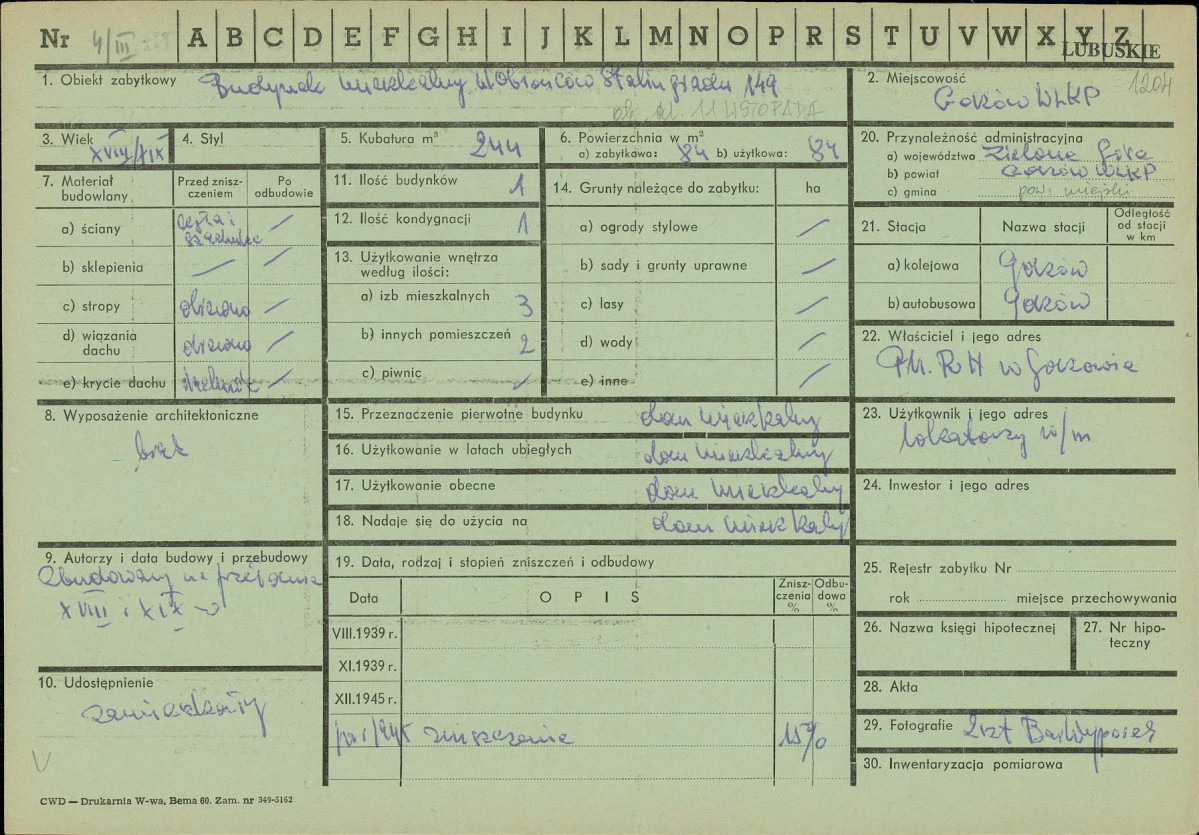 Nr 4/III A B C D E F G H I J K L M N O P R S T U V W X Y Z
LUBUSKIE
1. Obiekt zabytkowy Budynek mieszkalny ul. Obrońców Stalingradu 149
ob. ul. 11 LISTOPADA
2. Miejscowość 1204
Gorzów WLKP
3. Wiek XVIII/XIX
4. Styl
5. Kubatura m³ 244
6. Powierzchnia w m²
a) zabytkowa: 84 b) użytkowa: 84
7. Materiał budowlany
Przed zniszczeniem
Po odbudowie
a) ściany cegła i szachulec —
b) sklepienia — —
c) stropy drewno —
d) wiązania dachu drewno —
e) krycie dachu —
8. Wyposażenie architektoniczne
brak
9. Autorzy i data budowy i przebudowy
Zbudowany na przełomie
XVIII i XIX w
10. Udostępnienie
zamieszkały
11. Ilość budynków 1
12. Ilość kondygnacji 1
13. Użytkowanie wnętrza według ilości:
a) izb mieszkalnych 3
b) innych pomieszczeń 2
c) piwnic —
14. Grunty należące do zabytku: ha
a) ogrody stylowe —
b) sady i grunty uprawne —
c) lasy —
d) wody —
e) inne —
15. Przeznaczenie pierwotne budynku dom mieszkalny
16. Użytkowanie w latach ubiegłych dom mieszkalny
17. Użytkowanie obecne dom mieszkalny
18. Nadaje się do użycia na dom mieszkalny
19. Data, rodzaj i stopień zniszczeń i odbudowy
Data OPIS Zniszczenia % Odbudowa %
VIII.1939 r.
XI.1939 r.
XII.1945 r.
po 1945 zniszczenie 15%
20. Przynależność administracyjna
a) województwo Zielona Góra
b) powiat Gorzów WLKP
c) gmina pow. miejski
21. Stacja Nazwa stacji Odległość od stacji w km
a) kolejowa Gorzów
b) autobusowa Gorzów
22. Właściciel i jego adres
P.M.R.N w Gorzowie
23. Użytkownik i jego adres
lokatorzy w/m
24. Inwestor i jego adres
25. Rejestr zabytku Nr
rok miejsce przechowywania
26. Nazwa księgi hipotecznej
27. Nr hipoteczny
28. Akta
29. Fotografie 2szt
30. Inwentaryzacja pomiarowa
V
CWD — Drukarnia W-wa, Bema 60. Zam. nr 349-5162